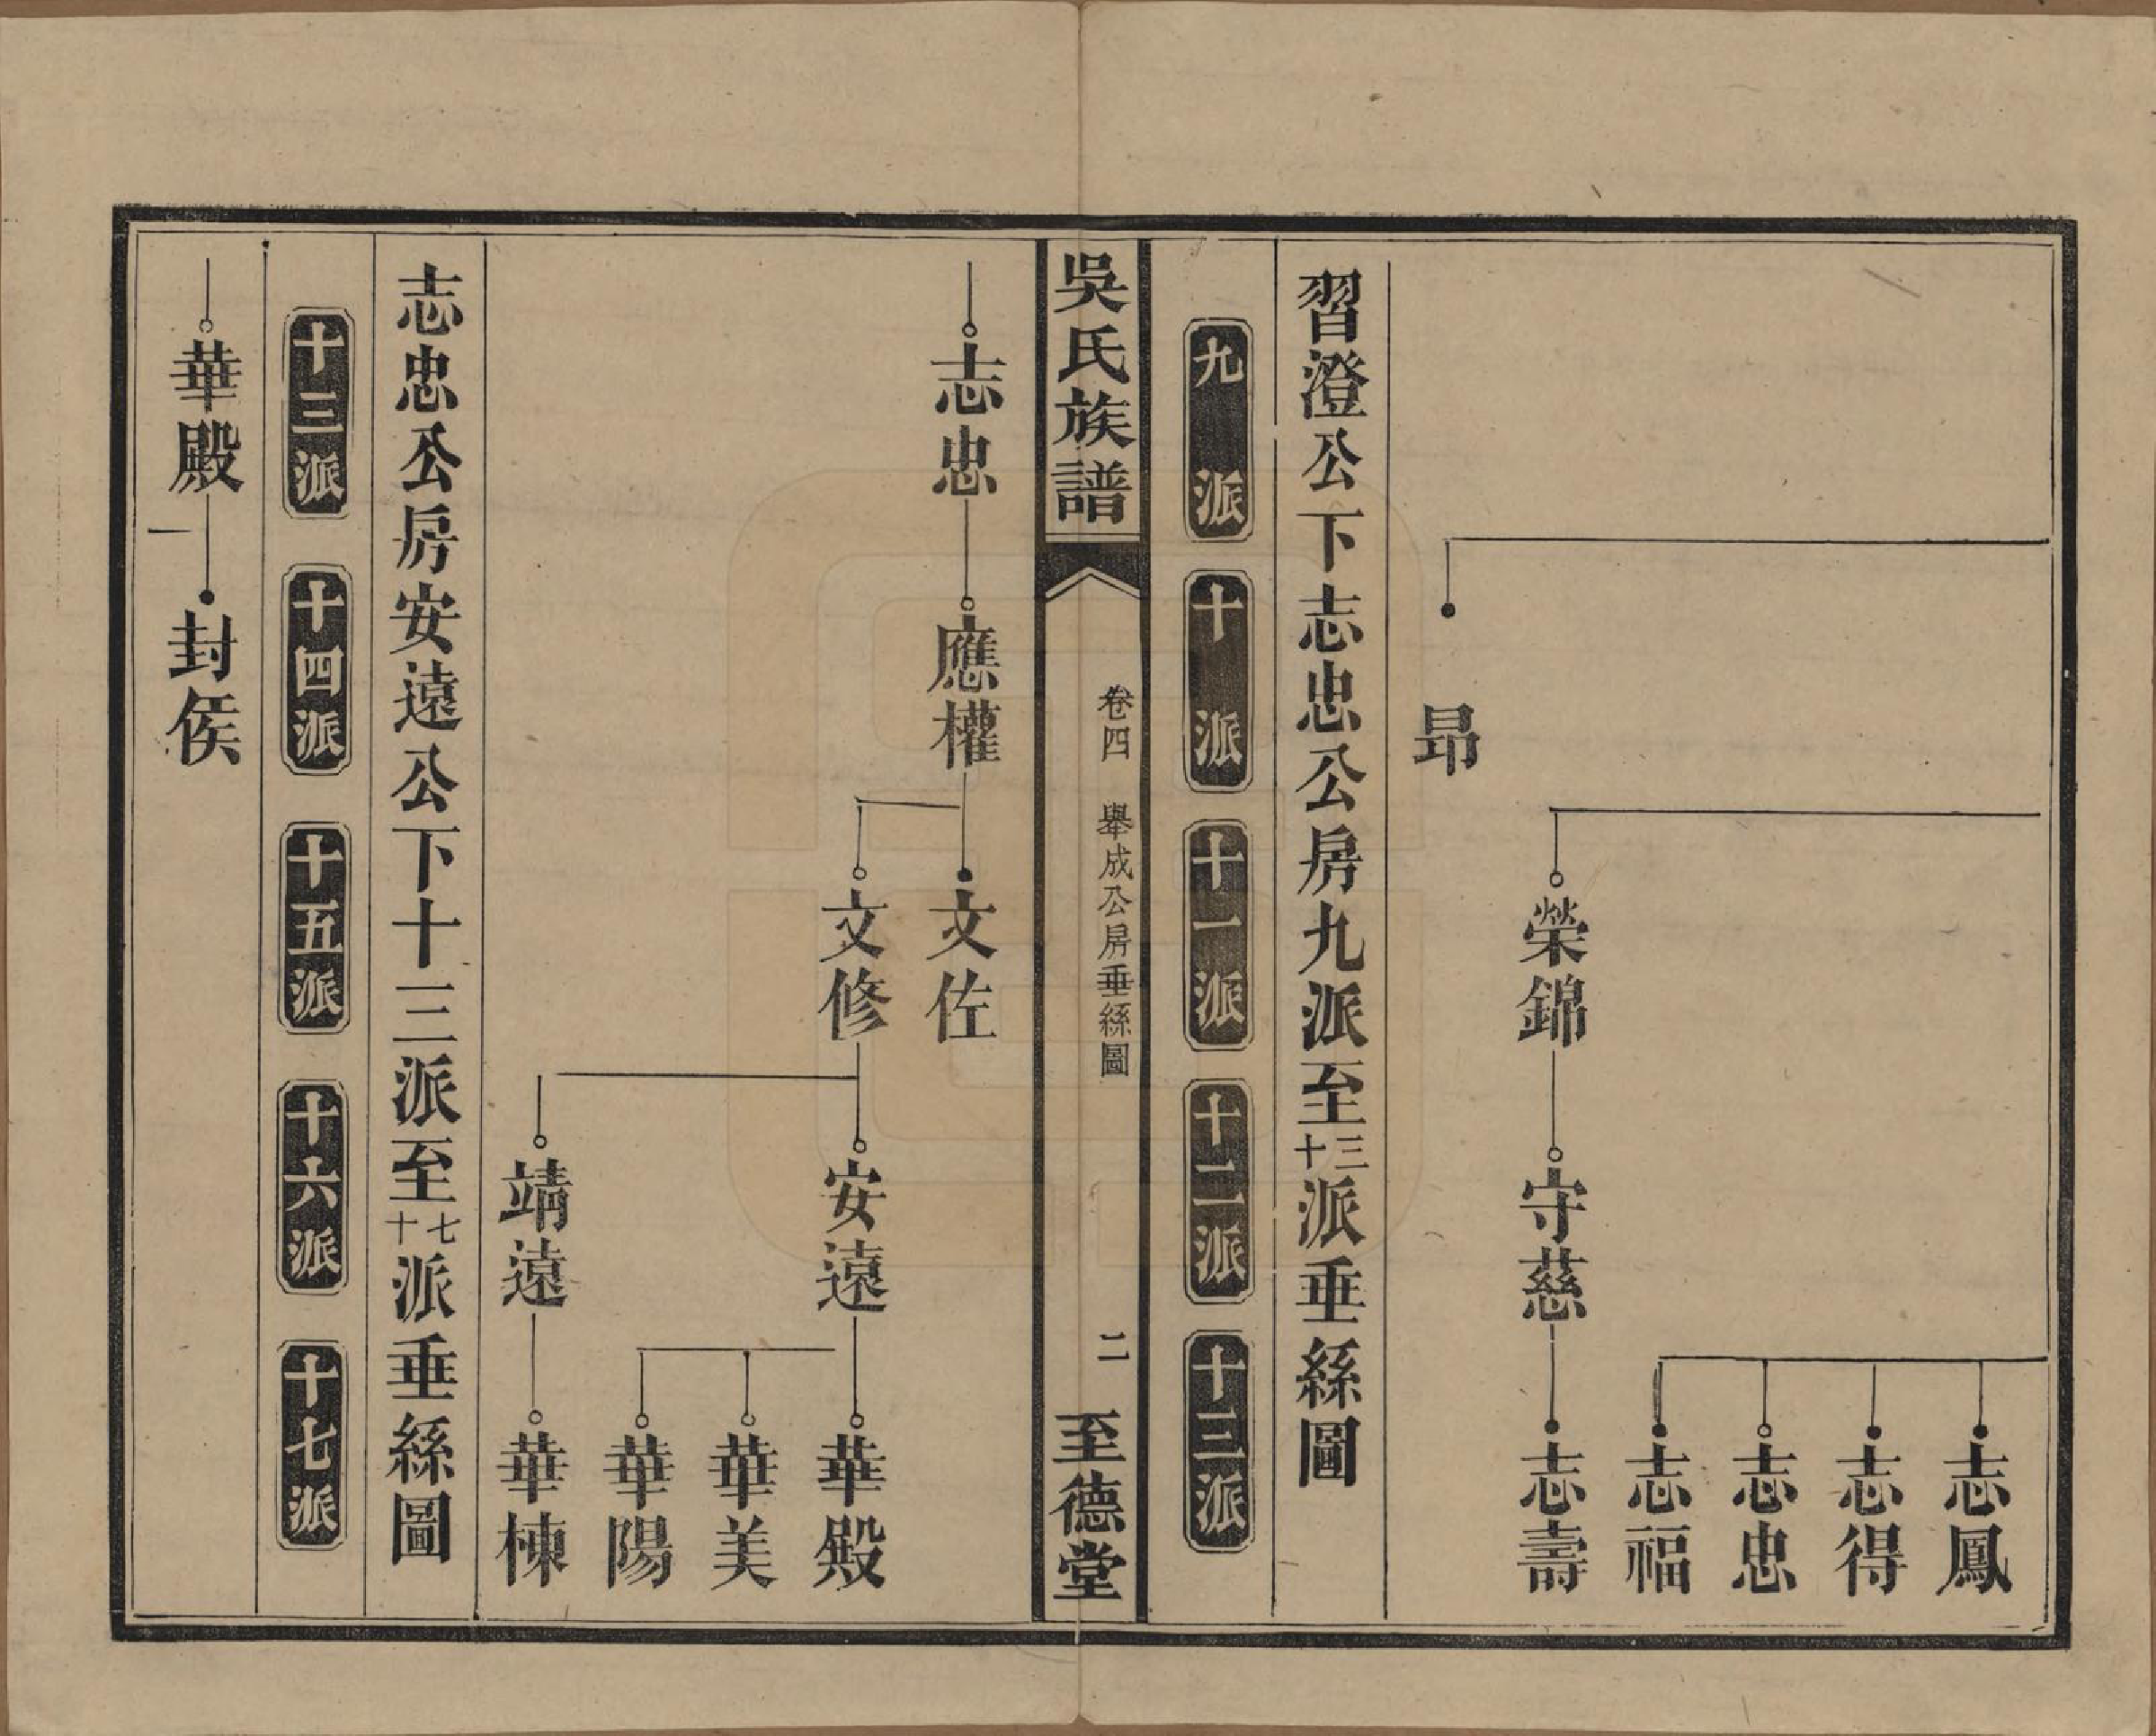 志鳳
志得
志忠
志福
榮錦
守慈
志壽
昻
習澄公下志忠公房九派至十三派垂絲圖
九派
十派
十一派
十二派
十三派
吳氏族譜
卷四 舉成公房垂絲圖
二
至德堂
志忠
應權
文佐
文修
安遠
華殿
華美
華陽
靖遠
華棟
志忠公房安遠公下十三派至十七派垂絲圖
十三派
十四派
十五派
十六派
十七派
華殿
封侯